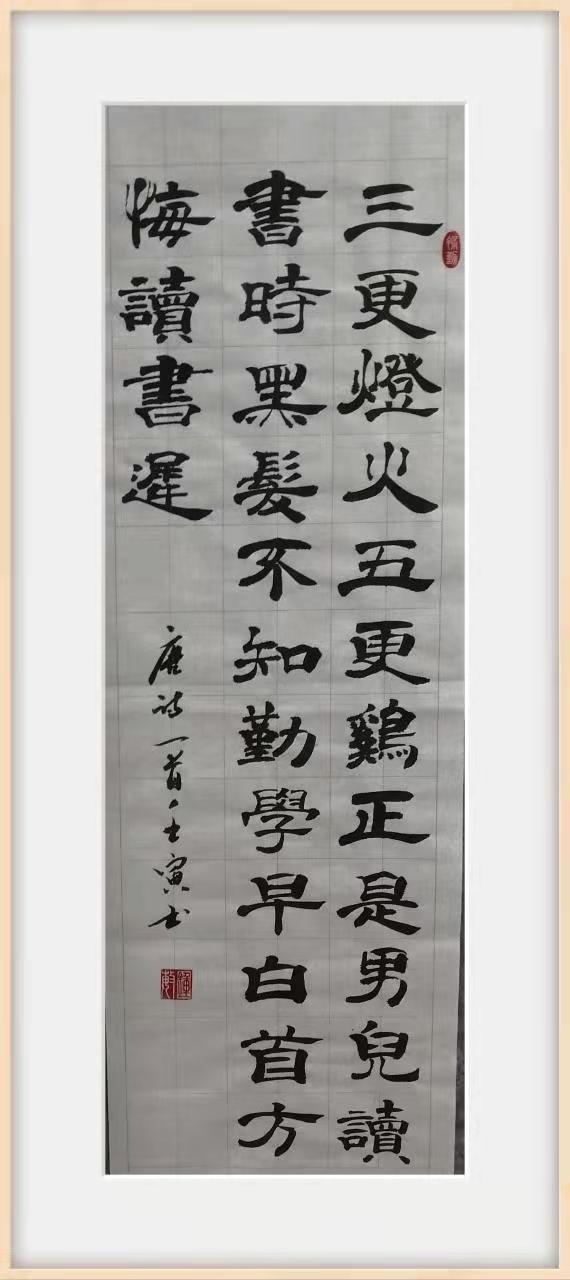 三更燈火五更鷄正是男兒讀
書時黑髮不知勤學早白首方
悔讀書遲
唐詩一首壬寅書